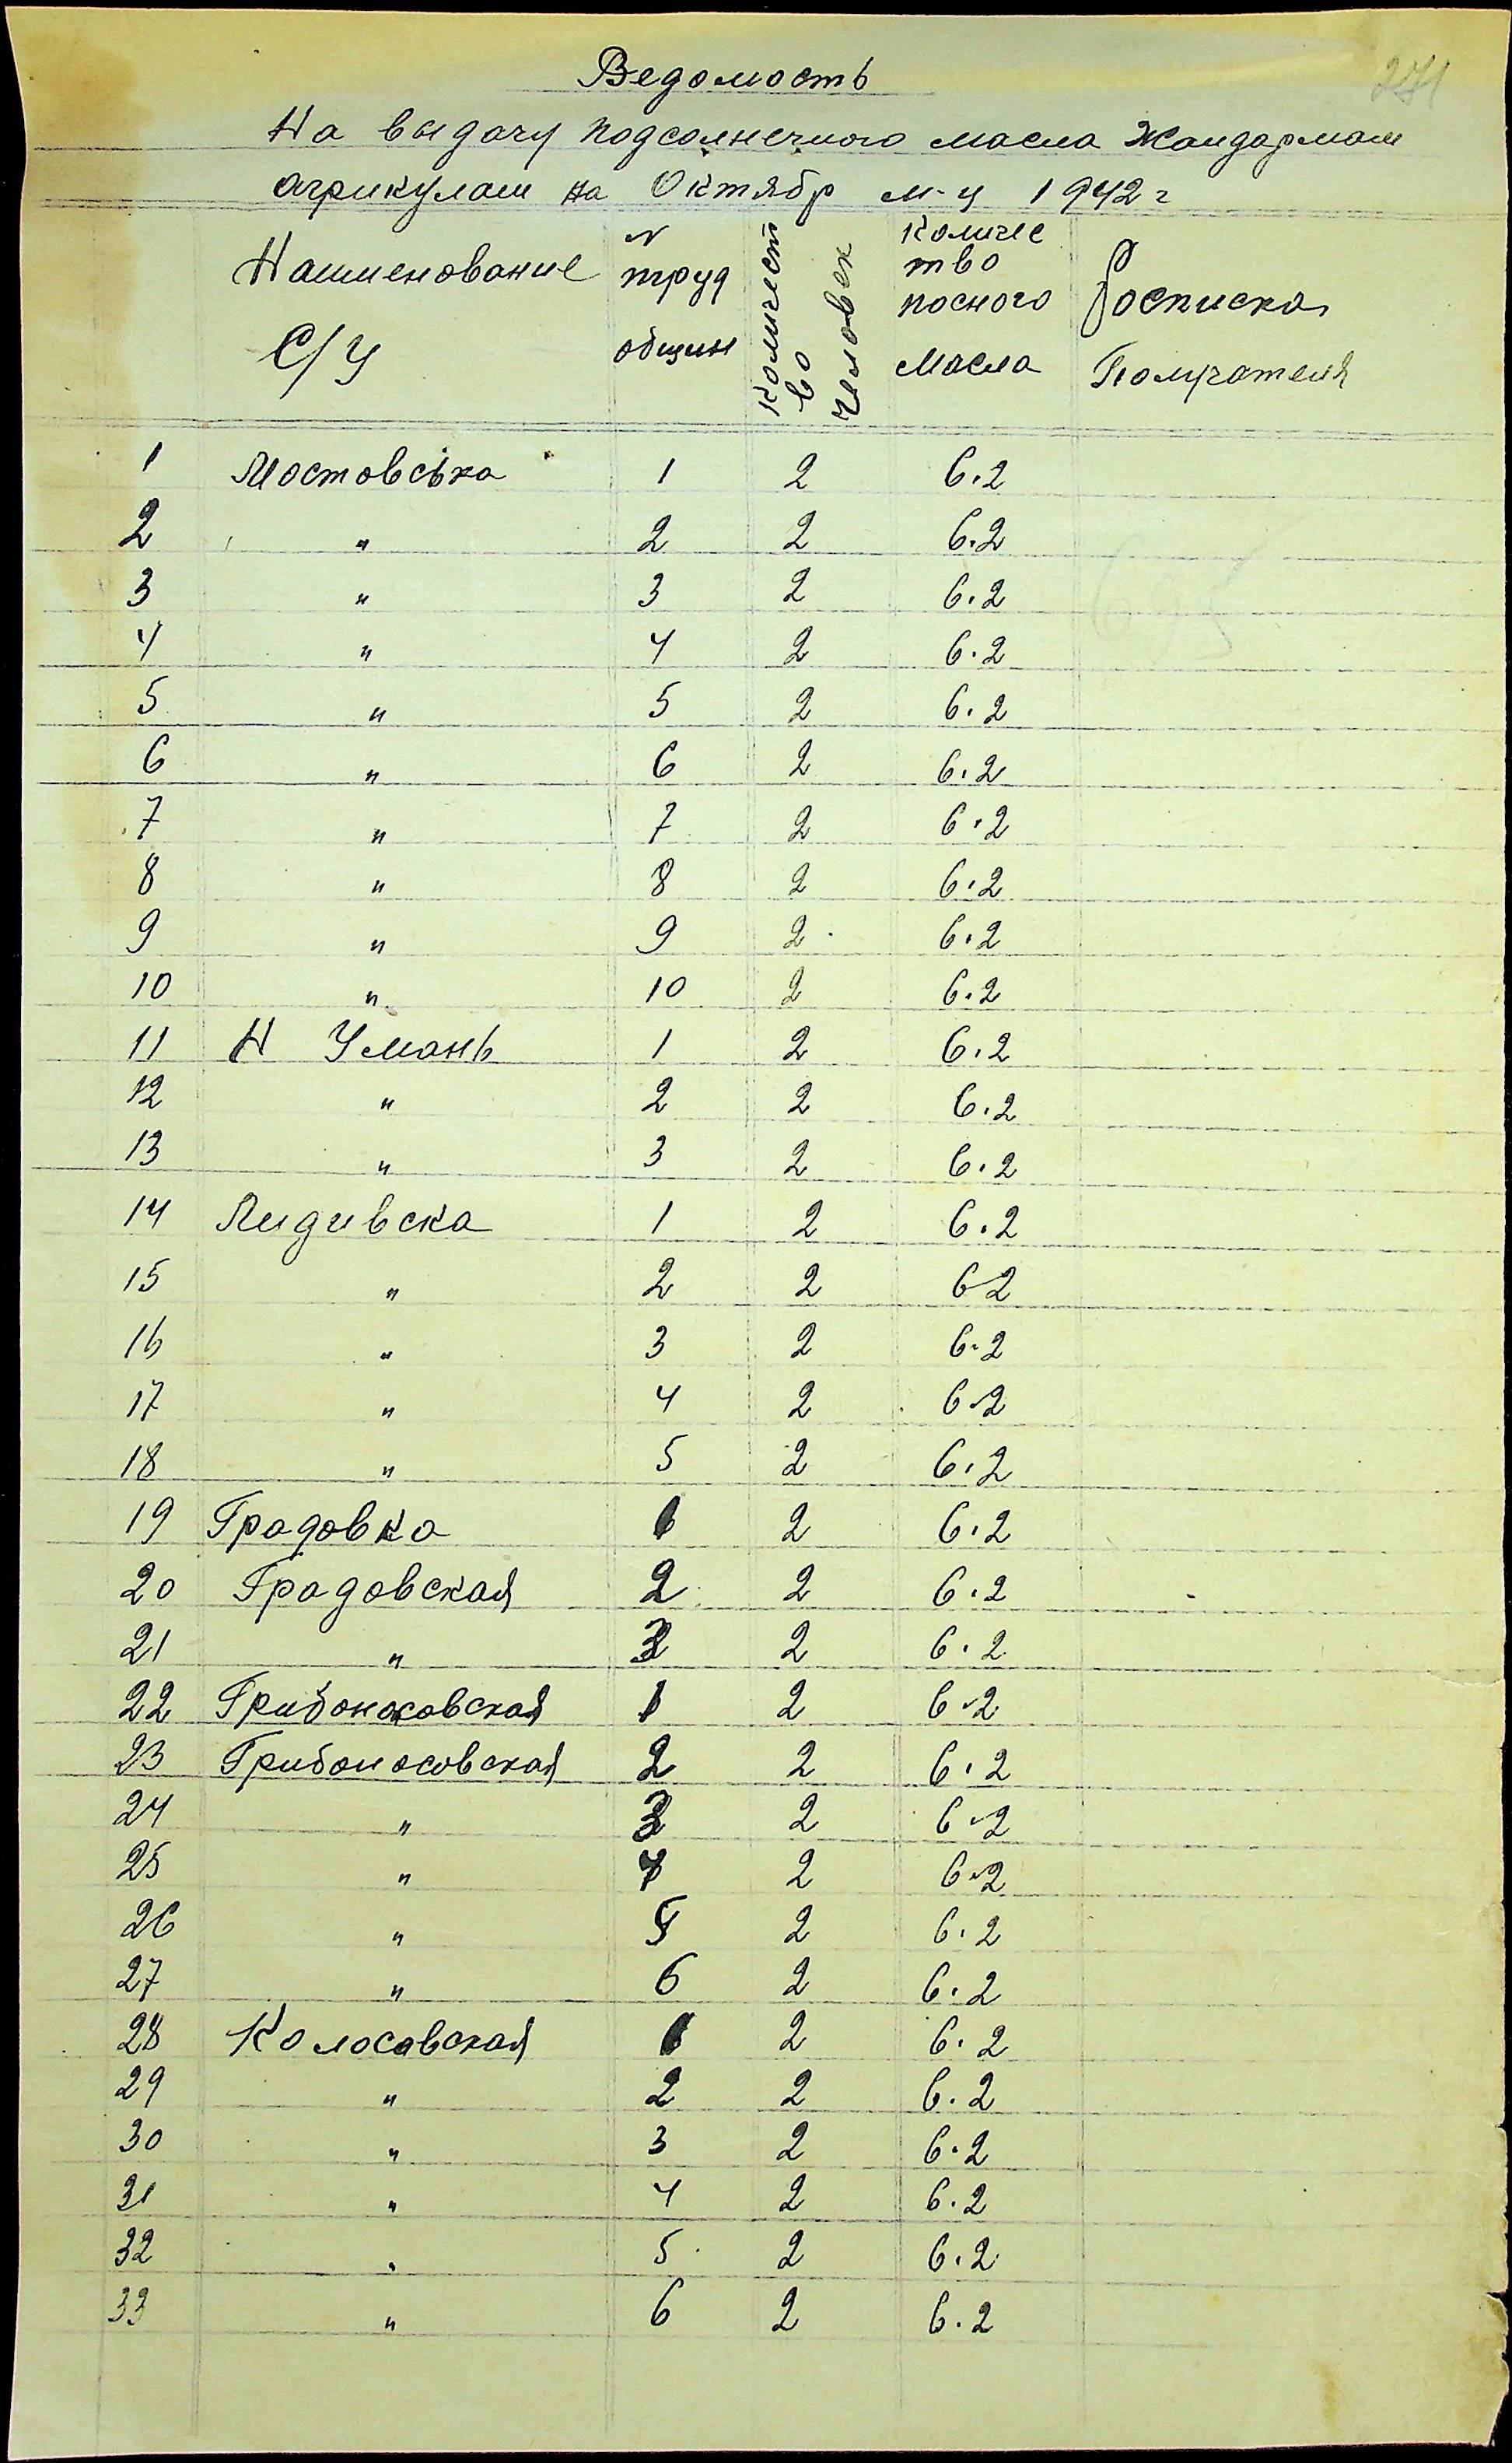 271
Ведомость
На выдачу подсолнечного масла Жандармам
агрикулам на Октябр м-ц 1942 г
Наименование С/У № труд общин Количество человек Количество посного масла Росписка Получателя
1 Мостовська 1 2 6.2
2 " 2 2 6.2
3 " 3 2 6.2
4 " 4 2 6.2
5 " 5 2 6.2
6 " 6 2 6.2
7 " 7 2 6.2
8 " 8 2 6.2
9 " 9 2 6.2
10 " 10 2 6.2
11 Н Умань 1 2 6.2
12 " 2 2 6.2
13 " 3 2 6.2
14 Лидивска 1 2 6.2
15 " 2 2 6-2
16 " 3 2 6.2
17 " 4 2 6.2
18 " 5 2 6.2
19 Градовка 1 2 6.2
20 Градовская 2 2 6.2
21 " 3 2 6.2
22 Грибоносовская 1 2 6.2
23 Грибоносовская 2 2 6.2
24 " 3 2 6.2
25 " 4 2 6.2
26 " 5 2 6.2
27 " 6 2 6.2
28 Колосовская 1 2 6.2
29 " 2 2 6.2
30 " 3 2 6.2
31 " 4 2 6.2
32 " 5 2 6.2
33 " 6 2 6.2